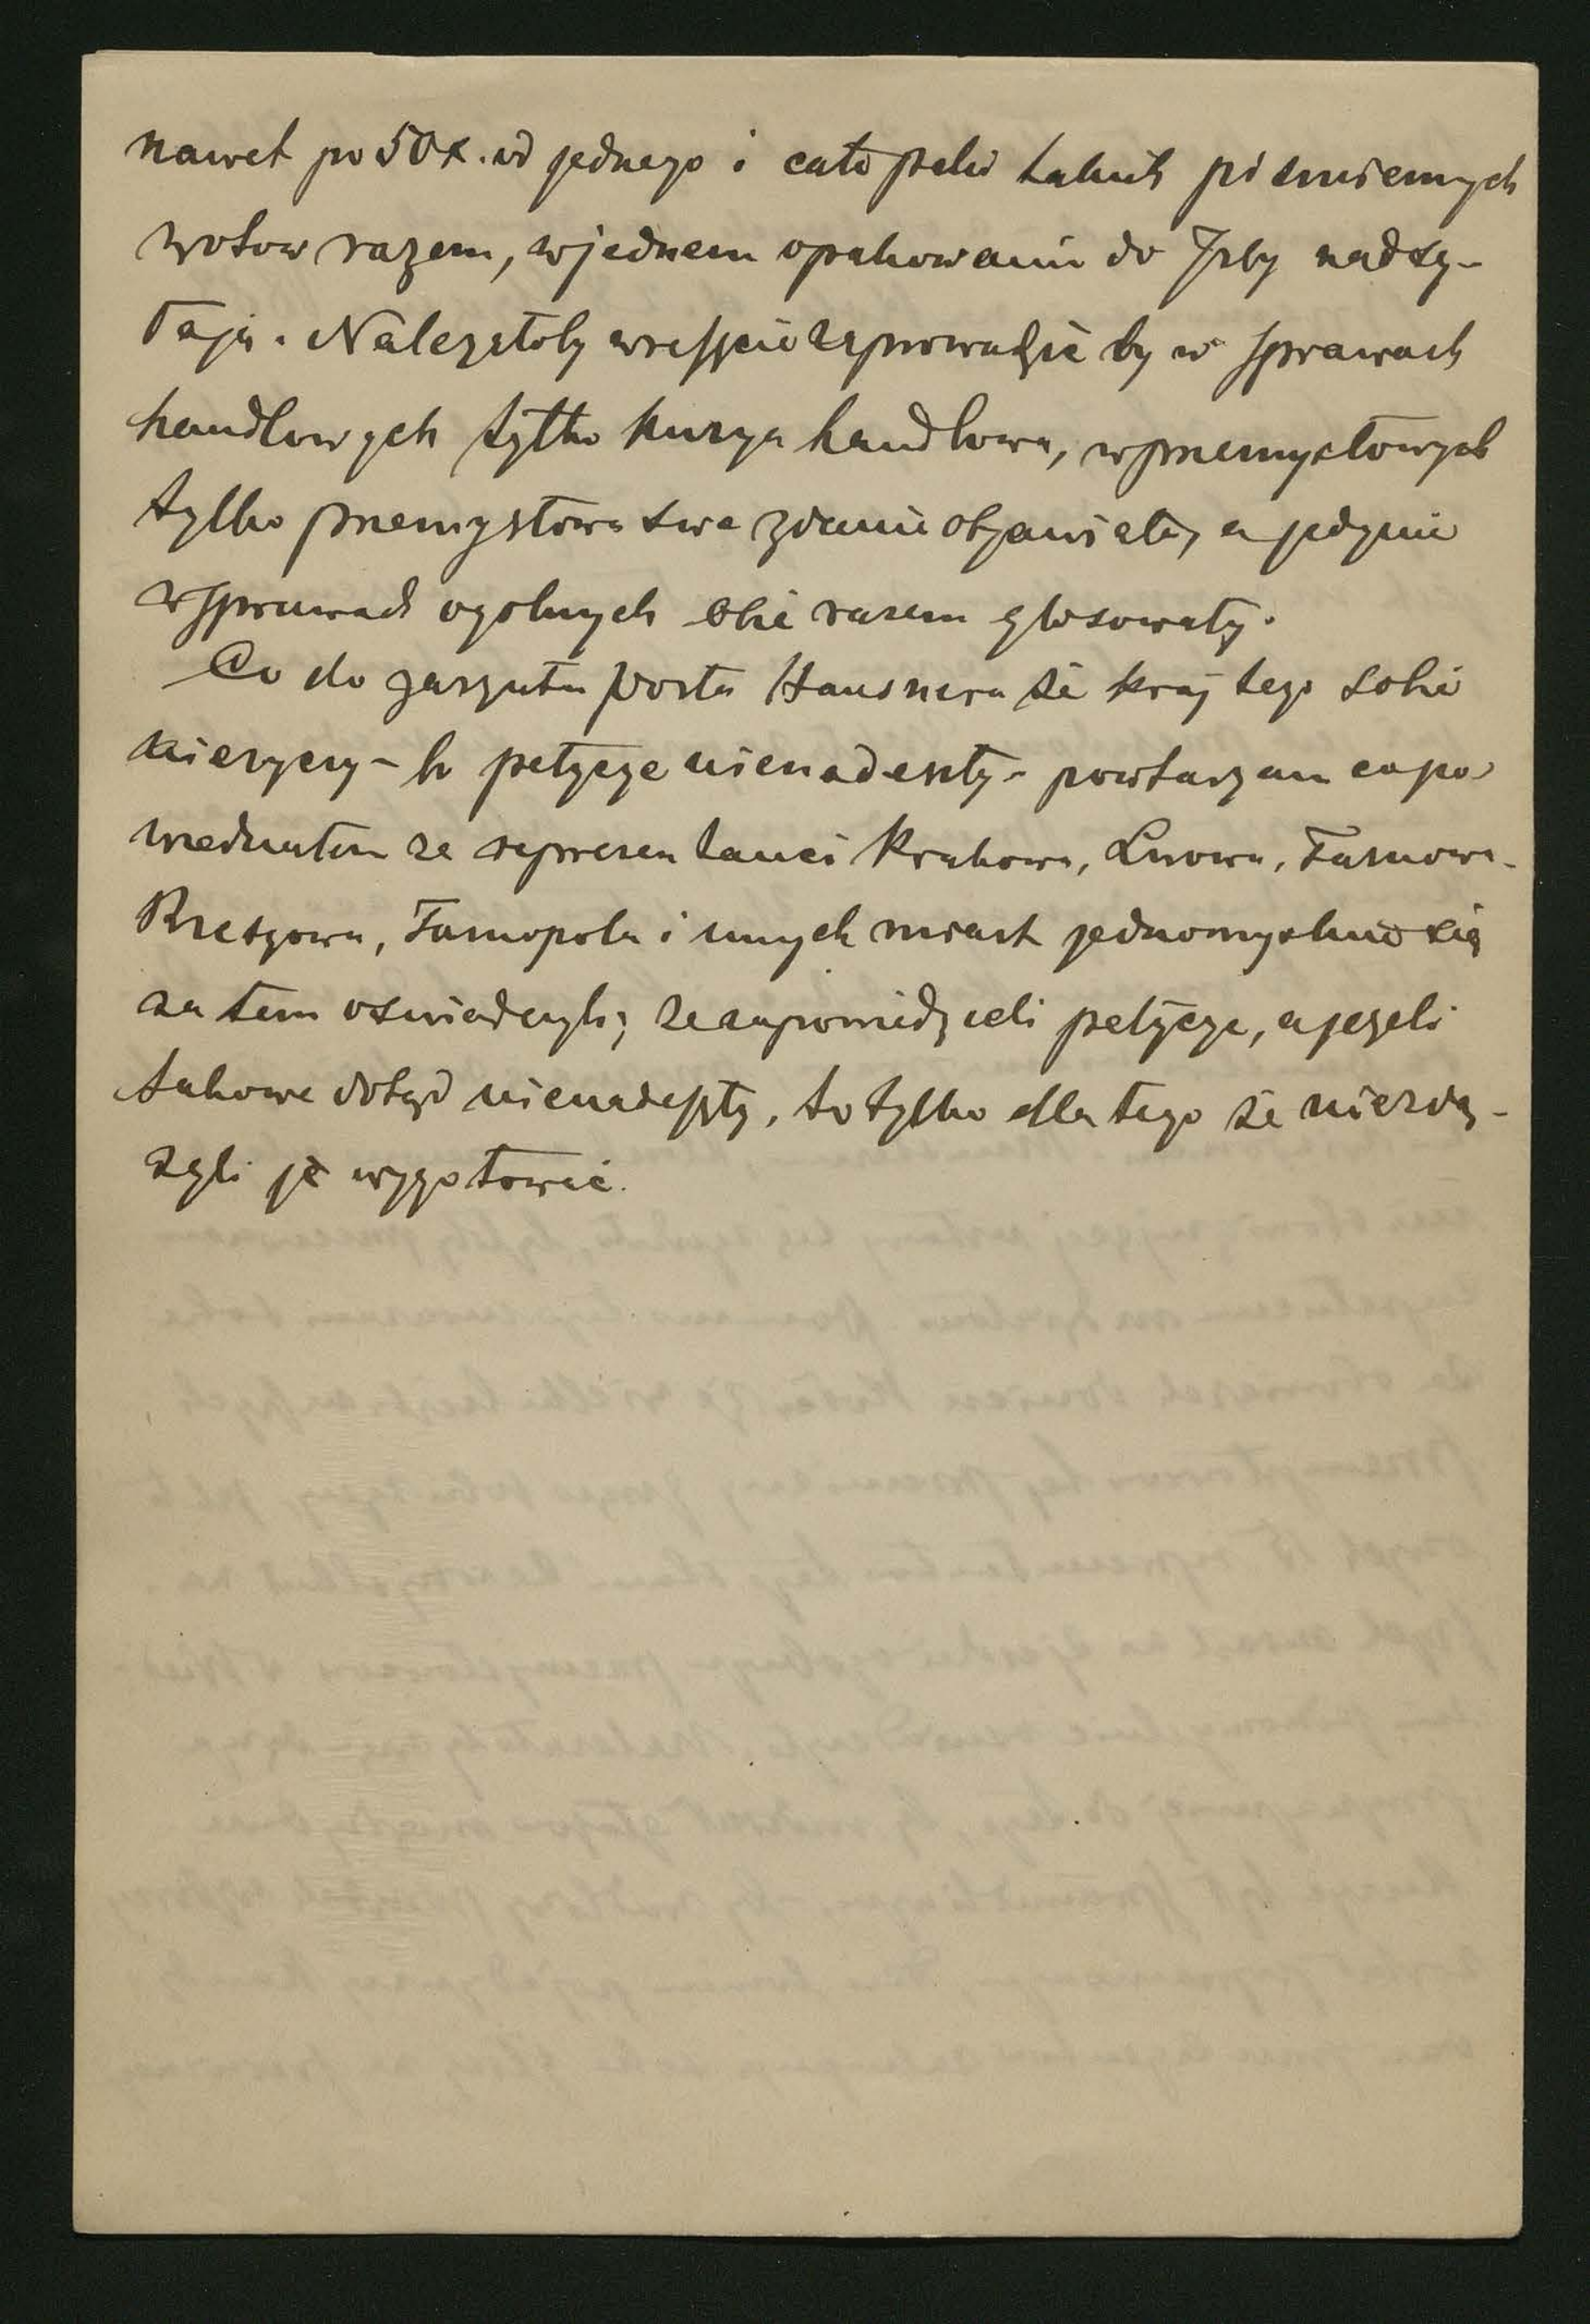 nawet po 50 x. od jednego i całe paki takich piśmiennych
wotow razem, w jednem opakowaniu do Izby nadsy-
łają. Należałoby wreszcie zaprowadzić by w sprawach
handlowych tylko kurya handlowa, w przemysłowych
tylko przemysłowa swe zdanie objawiały, a jedynie
w sprawach ogolnych obie razem głosowały.
Co do zarzutu posła Hausnera że kraj tego sobie
nieżyczy - bo petycye nienadeszły - powtarzam co po-
wiedziałem ze reprezentanci Krakowa, Lwowa, Tarnowa,
Rzeszowa, Tarnopola i innych miast jednomyslnie się
za tem oswiadczyli; ze zapowiedzieli petycye, a jeżeli
takowe dotąd nienadeszły, to tylko dla tego że niezdą-
żyli je wygotować.